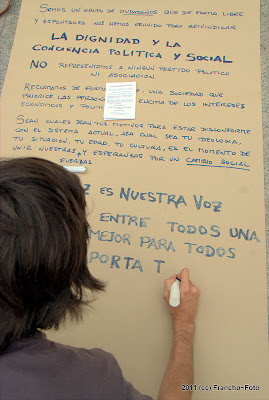 SOMOS UN GRUPO DE CIUDADANOS QUE DE FORMA LIBRE
Y ESPONTANEA NOS HEMOS REUNIDO PARA REIVINDICAR
LA DIGNIDAD Y LA
CONCIENCIA POLITICA Y SOCIAL
NO REPRESENTAMOS A NINGÚN PARTIDO POLITICO
NI ASOCIACION.
RECLAMAMOS DE FORMA UNA SOCIEDAD QUE
PRIORICE LAS PERSONAS ENCIMA DE LOS INTERESES
ECONOMICOS Y POLITICOS
SEAN CUALES SEAN TUS MOTIVOS PARA ESTAR DISCONFORME
CON EL SISTEMA ACTUAL, SEA CUAL SEA TU IDEOLOGIA,
TU SITUACION, TU EDAD, TU CULTURA, ES EL MOMENTO DE
UNIR NUESTRAS Y ESPERANZAS POR UN CAMBIO SOCIAL
FUERZAS
Z ES NUESTRA VOZ
ENTRE TODOS UNA
MEJOR PARA TODOS
PORTA T
2011 (cc) Francho-Foto